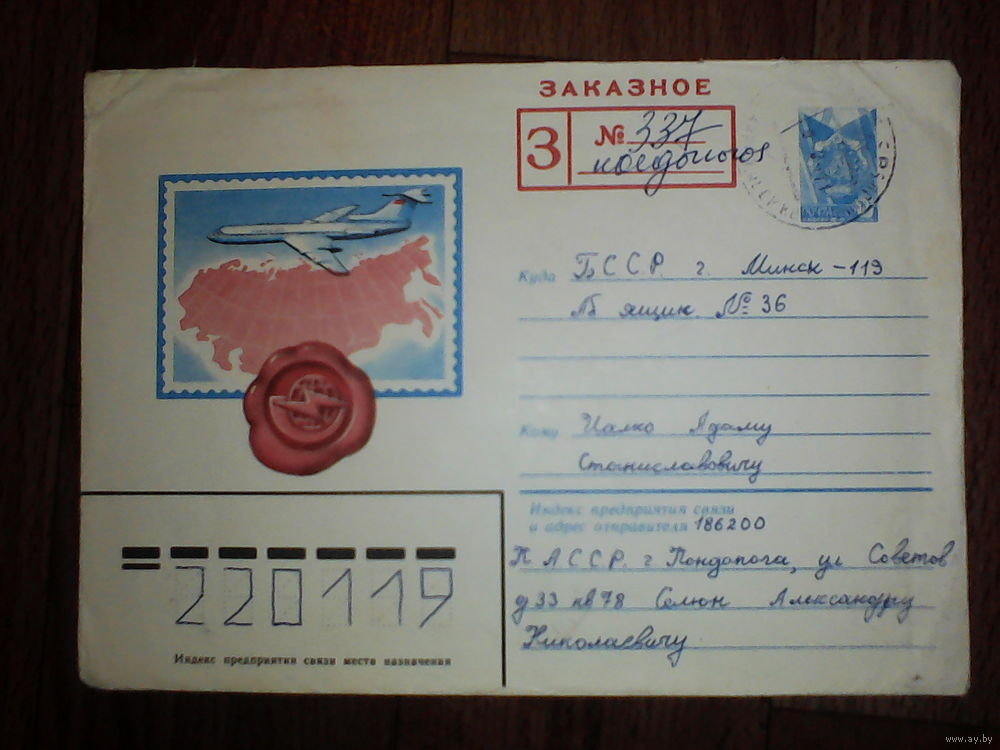 ЗАКАЗНОЕ
З № 337
Куда БССР. г. Минск-119
ящик № 36
Кому Чалко Адаму
Станиславовичу
Индекс предприятия связи
и адрес отправителя 186200
К А С С Р. г Кондопога, ул Советов
д 33 кв 78 Селюн Александру
Николаевичу
220119
Индекс предприятия связи места назначения
www.ay.by